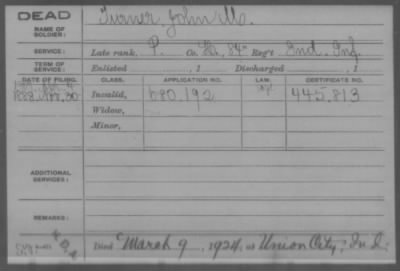 DEAD
NAME OF SOLDIER: Turner, John M.
SERVICE: Late rank, P. Co. 84" Reg't Ind. Inf.
TERM OF SERVICE: Enlisted , 1 Discharged , 1
DATE OF FILING. CLASS. APPLICATION NO. LAW. CERTIFICATE NO.
1888 30 Invalid, 680.192 445.813
Widow,
Minor,
ADDITIONAL SERVICES:
REMARKS:
Died March 9, 1924, at Union City, Ind.